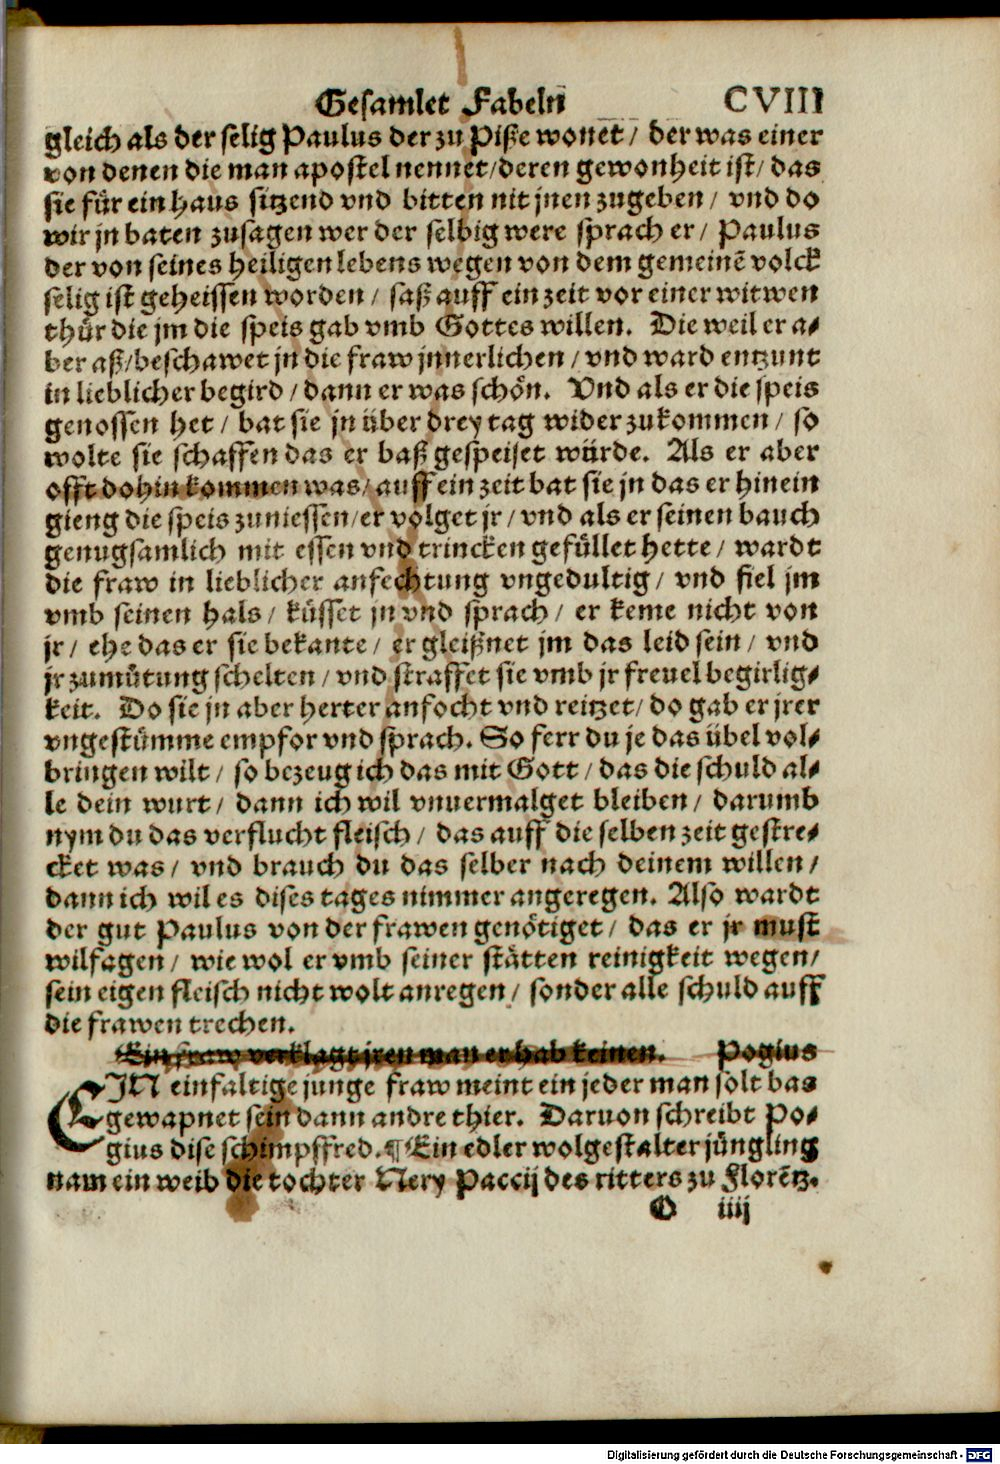 Gesamlet Fabeln CVIII
gleich als der selig Paulus der zu Piße wonet / der was einer
von denen die man apostel nennet/deren gewonheit ist/ das
sie für ein haus sitzend vnd bitten nit jnen zugeben / vnd do
wir jn baten zusagen wer der selbig were sprach er / Paulus
der von seines heiligen lebens wegen von dem gemeinē volck
selig ist geheissen worden / saß auff ein zeit vor einer witwen
thür die jm die speis gab vmb Gottes willen. Die weil er a⸗
ber aß/beschawet jn die fraw jnnerlichen / vnd ward entzunt
in lieblicher begird / dann er was schön. Vnd als er die speis
genossen het / bat sie jn über drey tag wider zukommen / so
wolte sie schaffen das er baß gespeiset würde. Als er aber
offt dohin kommen was/ auff ein zeit bat sie jn das er hinein
gieng die speis zuniessen/er volget jr / vnd als er seinen bauch
genugsamlich mit essen vnd trincken gefüllet hette / wardt
die fraw in lieblicher anfechtung vngedultig / vnd fiel jm
vmb seinen hals / küsset jn vnd sprach / er keme nicht von
jr / ehe das er sie bekante / er gleißnet jm das leid sein / vnd
jr zumütung schelten / vnd straffet sie vmb jr freuel begirlig⸗
keit. Do sie jn aber herter anfocht vnd reitzet/ do gab er jrer
vngestümme empfor vnd sprach. So ferr du je das übel vol⸗
bringen wilt / so bezeug ich das mit Gott / das die schuld al⸗
le dein wurt / dann ich wil vnuermalget bleiben / darumb
nym du das verflucht fleisch / das auff die selben zeit gestre⸗
cket was / vnd brauch du das selber nach deinem willen /
dann ich wil es dises tages nimmer angeregen. Also wardt
der gut Paulus von der frawen genötiget / das er jr must
wilfagen / wie wol er vmb seiner stätten reinigkeit wegen/
sein eigen fleisch nicht wolt anregen / sonder alle schuld auff
die frawen trechen.
Ein fraw verklagt jren man er hab keinen. Pogius
EIN einfaltige junge fraw meint ein jeder man solt bas
gewapnet sein dann andre thier. Daruon schreibt Po⸗
gius dise schimpffred.¶Ein edler wolgestalter jüngling
nam ein weib die tochter Nery Paccij des ritters zu Florētz.
O iiij
Digitalisierung gefördert durch die Deutsche Forschungsgemeinschaft - DFG